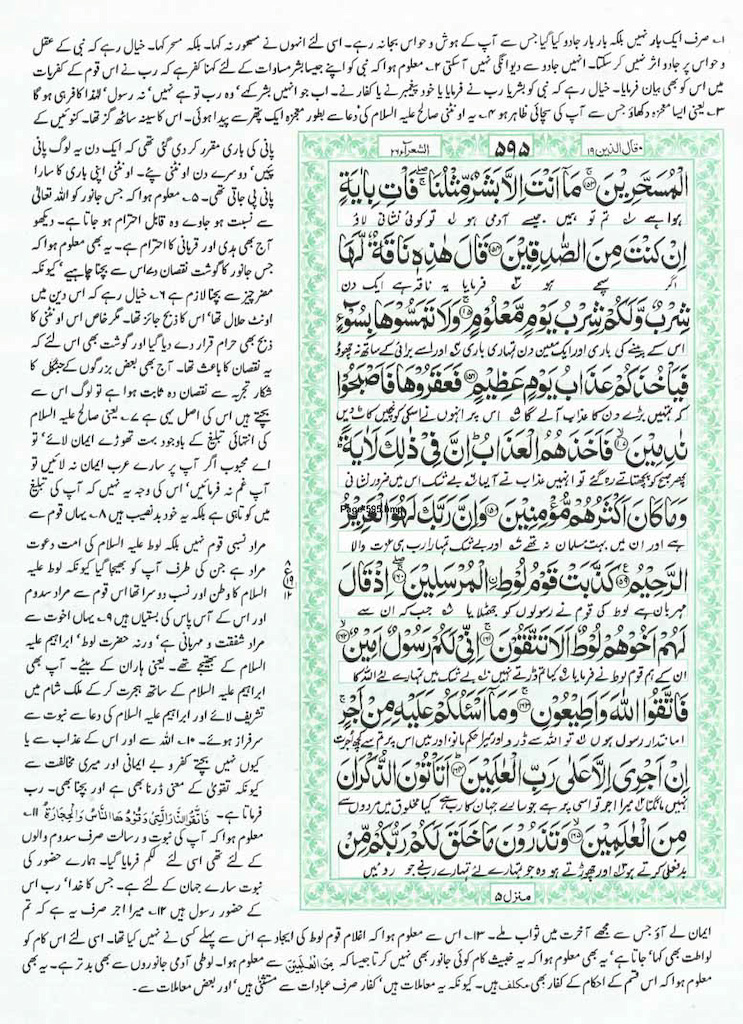 ۱؎ صرف ایک بار نہیں بلکہ بار بار جادو کیا گیا جس سے آپ کے ہوش و حواس بجا نہ رہے۔ اسی لئے انہوں نے مسحور نہ کہا۔ بلکہ مسحر کہا۔ خیال رہے کہ نبی کے عقل
و حواس پر جادو اثر نہیں کر سکتا۔ انہیں جادو سے دیوانگی نہیں آ سکتی ۲؎ معلوم ہوا کہ نبی کو اپنے جیسا بشر مساوات کے لئے کہنا کفر ہے کہ رب نے اس قوم کے کفریات
میں اس کو بھی بیان فرمایا۔ خیال رہے کہ نبی کو بشر یا رب نے فرمایا یا خود پیغمبر نے یا کفار نے۔ اب جو انہیں بشر کہے، وہ رب تو ہے نہیں، نہ رسول، لہٰذا کافر ہی ہو گا
۳؎ یعنی ایسا معجزہ دکھاؤ جس سے آپ کی سچائی ظاہر ہو ۴؎ یہ اونٹنی صالح علیہ السلام کی دعا سے بطور معجزہ ایک پتھر سے پیدا ہوئی۔ اس کا سینہ ساٹھ گز تھا۔ کنوئیں کے
وقال الذین ۱۹
۵۹۵
الشعرآء ۲۶
الْمُسَحَّرِیْنَ ۝۱۵۳ مَاۤ اَنْتَ اِلَّا بَشَرٌ مِّثْلُنَا ۚۖ فَاْتِ بِاٰیَةٍ
ہوا ہے تم تو ہمیں جیسے آدمی ہو تو کوئی نشانی لاؤ
اِنْ كُنْتَ مِنَ الصّٰدِقِیْنَ ۝۱۵۴ قَالَ هٰذِهٖ نَاقَةٌ لَّهَا
اگر سچے ہو فرمایا یہ ناقہ ہے ایک دن
شِرْبٌ وَّلَكُمْ شِرْبُ یَوْمٍ مَّعْلُوْمٍ ۝۱۵۵ وَلَا تَمَسُّوْهَا بِسُوْٓءٍ
اس کے پینے کی باری اور ایک معین دن تمہاری باری اور اسے برائی کے ساتھ نہ چھوؤ
فَیَاْخُذَكُمْ عَذَابُ یَوْمٍ عَظِیْمٍ ۝۱۵۶ فَعَقَرُوْهَا فَاَصْبَحُوْا
کہ تمہیں بڑے دن کا عذاب آلے گا اس پر انہوں نے اسکی کونچیں کاٹ دیں
نٰدِمِیْنَ ۝۱۵۷ فَاَخَذَهُمُ الْعَذَابُ ؕ اِنَّ فِیْ ذٰلِكَ لَاٰیَةً ؕ
پھر صبح کو پچھتاتے رہ گئے تو انہیں عذاب نے آلیا بے شک اس میں ضرور نشانی
وَمَا كَانَ اَكْثَرُهُمْ مُّؤْمِنِیْنَ ۝۱۵۸ وَاِنَّ رَبَّكَ لَهُوَ الْعَزِیْزُ
Page-595.bmp
ہے اور ان میں بہت مسلمان نہ تھے اور بے شک تمہارا رب ہی عزت والا
الرَّحِیْمُ ۝۱۵۹ كَذَّبَتْ قَوْمُ لُوْطِ ۣالْمُرْسَلِیْنَ ۝۱۶۰ اِذْ قَالَ
مہربان ہے لوط کی قوم نے رسولوں کو جھٹلایا جب کہ ان سے
لَهُمْ اَخُوْهُمْ لُوْطٌ اَلَا تَتَّقُوْنَ ۝۱۶۱ اِنِّیْ لَكُمْ رَسُوْلٌ اَمِیْنٌ ۝۱۶۲
ان کے ہم قوم لوط نے فرمایا کیا تم ڈرتے نہیں بے شک میں تمہارے لئے اللہ کا
فَاتَّقُوا اللّٰهَ وَاَطِیْعُوْنِ ۝۱۶۳ وَمَاۤ اَسْـَٔلُكُمْ عَلَیْهِ مِنْ اَجْرٍ ۚ
امانتدار رسول ہوں تو اللہ سے ڈرو اور میرا حکم مانو اور میں اس پر تم سے کچھ اجرت
اِنْ اَجْرِیَ اِلَّا عَلٰی رَبِّ الْعٰلَمِیْنَ ۝۱۶۴ اَتَاْتُوْنَ الذُّكْرَانَ
نہیں مانگتا میرا اجر تو اسی پر ہے جو سارے جہان کا رب ہے کیا مخلوق میں مردوں سے
مِنَ الْعٰلَمِیْنَ ۝۱۶۵ وَتَذَرُوْنَ مَا خَلَقَ لَكُمْ رَبُّكُمْ مِّنْ
بدفعلی کرتے ہو اور چھوڑتے ہو وہ جو تمہارے لئے تمہارے رب نے جو روئیں
منزل ۵
ع
پانی کی باری مقرر کر دی گئی تھی کہ ایک دن یہ لوگ پانی
پئیں، دوسرے دن اونٹنی پئے۔ اونٹنی اپنی باری کا سارا
پانی پی جاتی تھی۔ ۵؎ معلوم ہوا کہ جس جانور کو اللہ تعالیٰ
سے نسبت ہو جاوے وہ قابل احترام ہو جاتا ہے۔ دیکھو
آج بھی ہدی اور قربانی کا احترام ہے۔ یہ بھی معلوم ہوا کہ
جس جانور کا گوشت نقصان دے اس سے بچنا چاہیے، کیونکہ
مضر چیز سے بچنا لازم ہے ۶؎ خیال رہے کہ اس دین میں
اونٹ حلال تھا، اس کا ذبح جائز تھا۔ مگر خاص اس اونٹنی کا
ذبح بھی حرام قرار دے دیا گیا اور گوشت بھی اس لئے کہ
یہ نقصان کا باعث تھا۔ آج بھی بعض بزرگوں کے جنگل کا
شکار تجربہ سے نقصان دہ ثابت ہوا ہے تو لوگ اس سے
بچتے ہیں اس کی اصل یہی ہے ۷؎ یعنی صالح علیہ السلام
کی انتہائی تبلیغ کے باوجود بہت تھوڑے ایمان لائے، تو
اے محبوب اگر آپ پر سارے عرب ایمان نہ لائیں تو
آپ غم نہ فرمائیں، اس کی وجہ یہ نہیں کہ آپ کی تبلیغ
میں کوتاہی ہے بلکہ یہ خود بدنصیب ہیں ۸؎ یہاں قوم سے
مراد نسبی قوم نہیں بلکہ لوط علیہ السلام کی امت دعوت
مراد ہے جن کی طرف آپ کو بھیجا گیا کیونکہ لوط علیہ
السلام کا وطن اور نسب دوسرا تھا اس قوم سے مراد سدوم
اور اس کے آس پاس کی بستیاں ہیں ۹؎ یہاں اخوت سے
مراد شفقت و مہربانی ہے، ورنہ حضرت لوط، ابراہیم علیہ
السلام کے بھتیجے تھے۔ یعنی ہاران کے بیٹے۔ آپ بھی
ابراہیم علیہ السلام کے ساتھ ہجرت کر کے ملک شام میں
تشریف لائے اور ابراہیم علیہ السلام کی دعا سے نبوت سے
سرفراز ہوئے۔ ۱۰؎ اللہ سے اور اس کے عذاب سے یا
کیوں نہیں بچتے کفر و بے ایمانی اور میری مخالفت سے
کیونکہ تقویٰ کے معنی ڈرنا بھی ہے اور بچنا بھی۔ رب
فرماتا ہے۔ فَاتَّقُوا النَّارَ الَّتِیْ وَقُوْدُهَا النَّاسُ وَالْحِجَارَةُ ۱۱؎
معلوم ہوا کہ آپ کی نبوت و رسالت صرف سدوم والوں
کے لئے تھی اسی لئے لکم فرمایا گیا۔ ہمارے حضور کی
نبوت سارے جہان کے لئے ہے۔ جس کا خدا، رب اس
کے حضور رسول ہیں ۱۲؎ میرا اجر صرف یہ ہے کہ تم
ایمان لے آؤ جس سے مجھے آخرت میں ثواب ملے۔ ۱۳؎ اس سے معلوم ہوا کہ اغلام قوم لوط کی ایجاد ہے اس سے پہلے کسی نے نہیں کیا تھا۔ اسی لئے اس کام کو
لواطت بھی کہا، جاتا ہے، یہ بھی معلوم ہوا کہ یہ خبیث کام کوئی جانور بھی نہیں کرتا جیسا کہ مِنَ الْعٰلَمِیْنَ سے معلوم ہوا۔ لوطی آدمی جانوروں سے بھی بدتر ہے۔ یہ بھی
معلوم ہوا کہ اس قسم کے احکام کے کفار بھی مکلف ہیں۔ کیونکہ یہ معاملات ہیں، کفار صرف عبادات سے مستثنیٰ ہیں، اور بعض معاملات سے۔